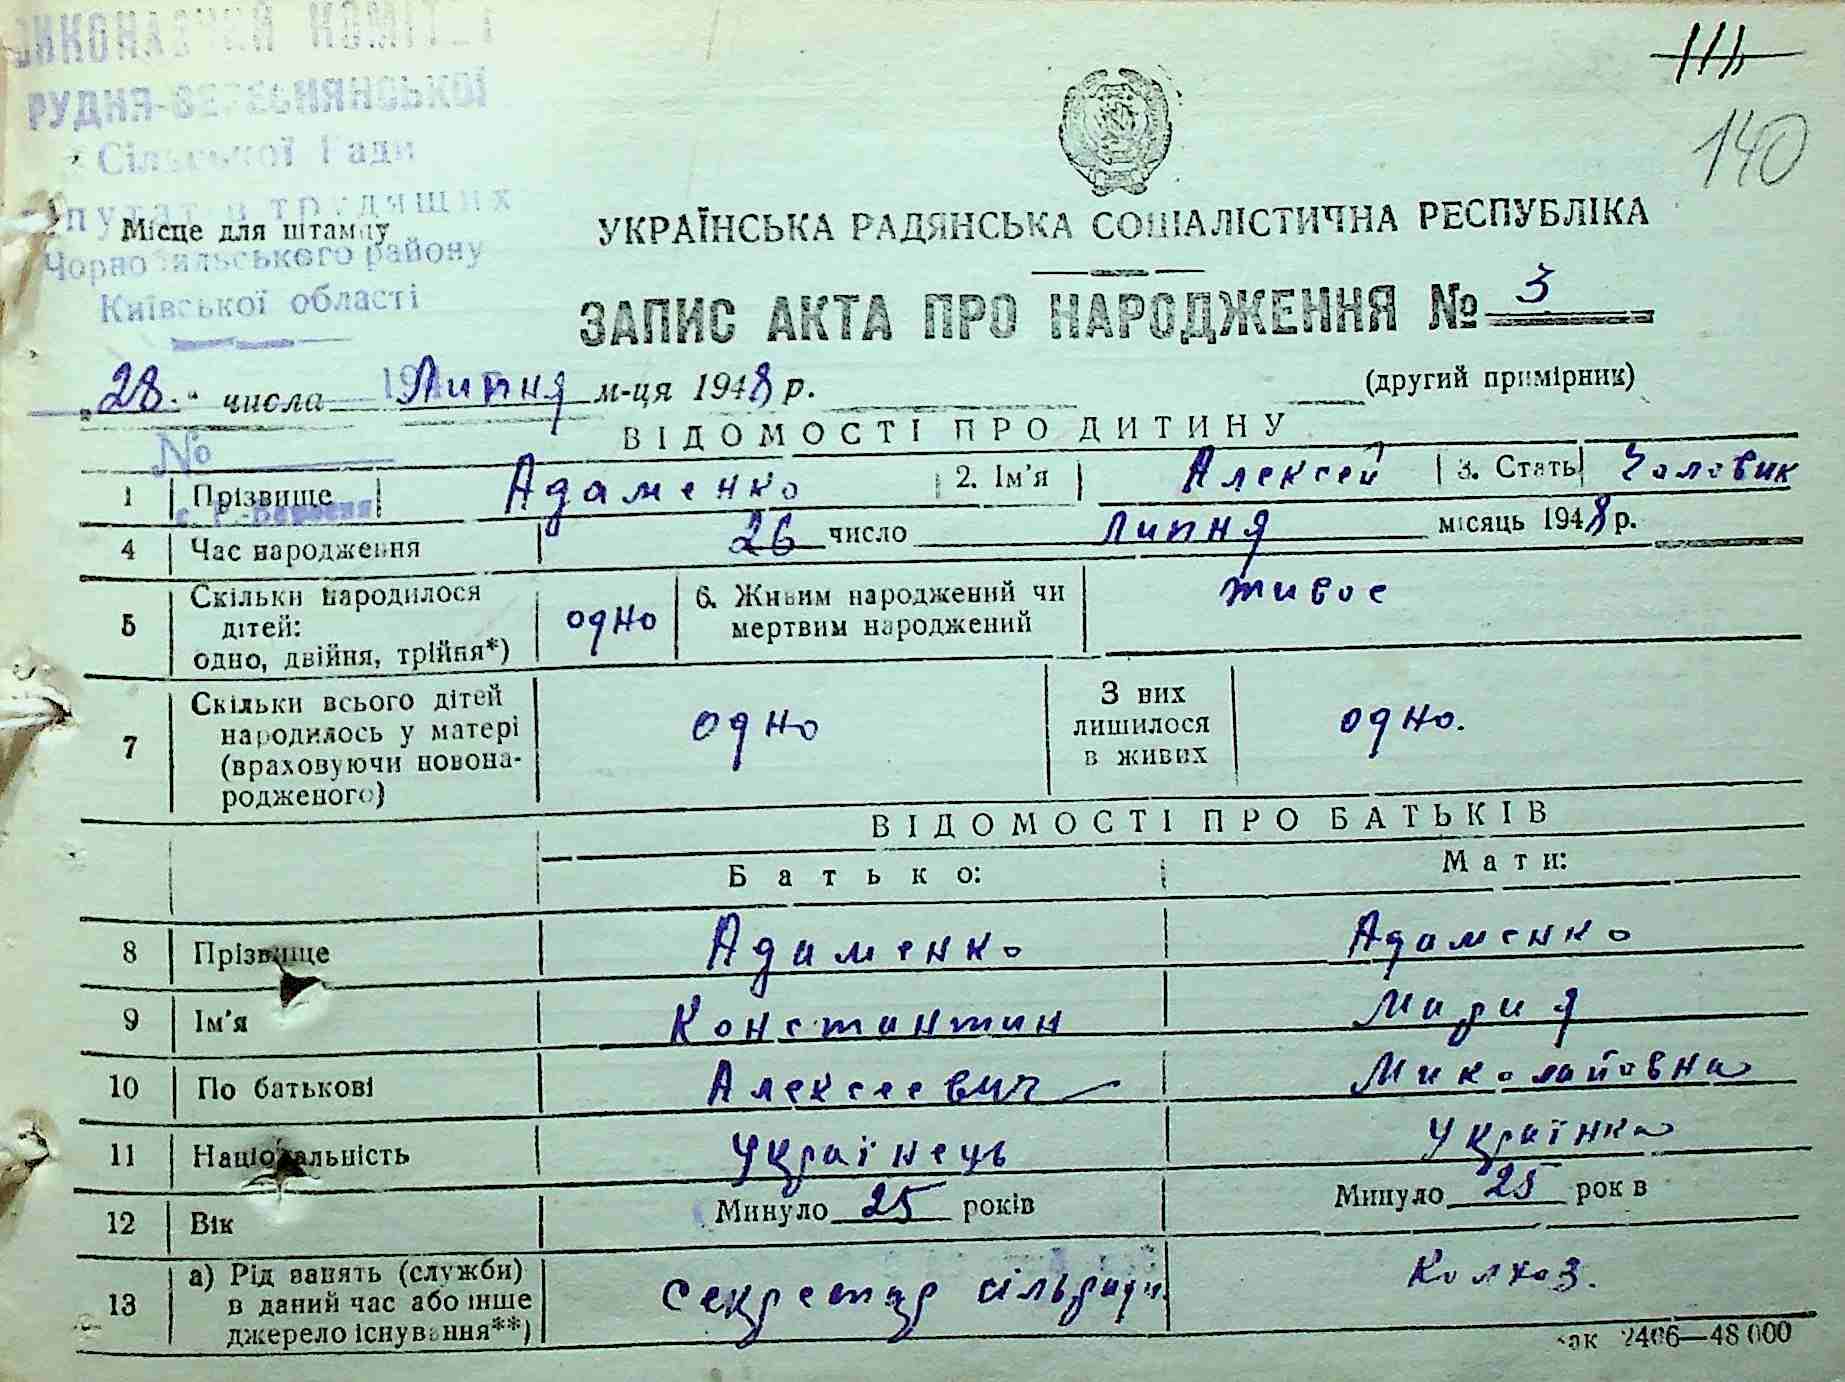 ВИКОНАВЧИЙ КОМІТЕТ
РУДНЯ-ВЕРЕСНЯНСЬКОЇ
Сільської Ради
депутатів трудящих
Чорнобильського району
Київської області
Місце для штампу
111
140
УКРАЇНСЬКА РАДЯНСЬКА СОЦІАЛІСТИЧНА РЕСПУБЛІКА
ЗАПИС АКТА ПРО НАРОДЖЕННЯ № 3
„28“ числа Липня м-ця 1948 р.
(другий примірник)
№
ВІДОМОСТІ ПРО ДИТИНУ
1 Прізвище Адаменко 2. Ім'я Алексей 3. Стать Чоловик
4 Час народження 26 число Липня місяць 1948 р.
5 Скільки народилося дітей: одно, двійня, трійня*) одно 6. Живим народжений чи мертвим народжений живое
7 Скільки всього дітей народилось у матері (враховуючи новонародженого) одно З них лишилося в живих одно.
ВІДОМОСТІ ПРО БАТЬКІВ
Батько: Мати:
8 Прізвище Адаменко Адаменко
9 Ім'я Константин Мария
10 По батькові Алексеевич Миколайовна
11 Національність Українець Українка
12 Вік Минуло 25 років Минуло 25 років
13 а) Рід занять (служби) в даний час або інше джерело існування**) Секретар сільради. Колхоз.
Зак 2406—48 000